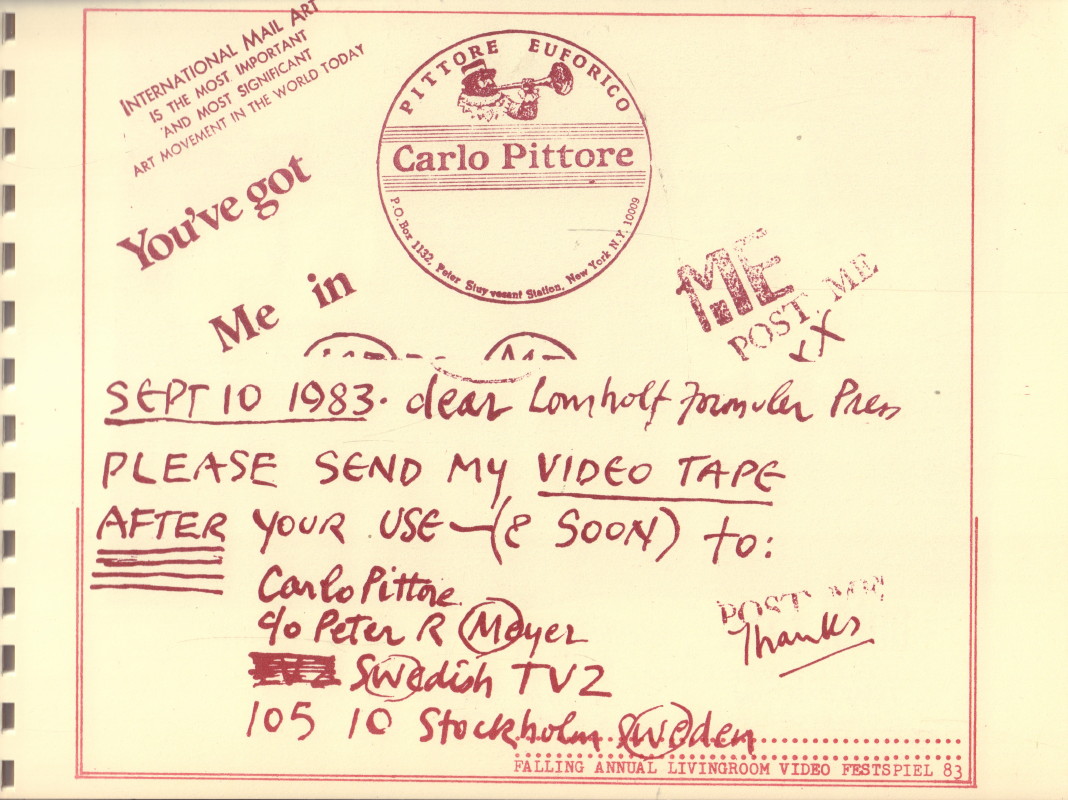 INTERNATIONAL MAIL ART
IS THE MOST IMPORTANT
AND MOST SIGNIFICANT
ART MOVEMENT IN THE WORLD TODAY
PITTORE EUFORICO
Carlo Pittore
P.O. Box 1132, Peter Stuyvesant Station, New York N.Y. 10009
You've got
Me in
ME
POST ME
XX
SEPT 10 1983. dear Lomholt Formular Press
PLEASE SEND MY VIDEO TAPE
AFTER YOUR USE—(& SOON) to:
Carlo Pittore
c/o Peter R Meyer
Swedish TV2
105 10 Stockholm Sweden
POST ME
Thanks
FALLING ANNUAL LIVINGROOM VIDEO FESTSPIEL 83